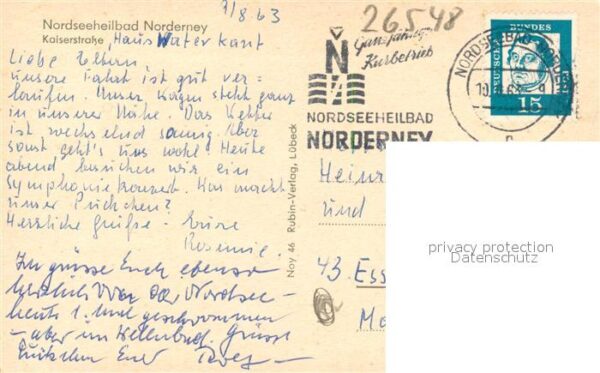 7/8 63
Nordseeheilbad Norderney
Kaiserstraße, Haus Waterkant
Liebe Eltern,
unsere Fahrt ist gut ver=
laufen. Unser Wagen steht ganz
in unserer Nähe. Das Wetter
ist wechselnd sonnig. Aber
sonst geht's uns wohl. Heute
abend besuchen wir ein
Symphoniekonzert. Was macht
unser Pückchen?
Herzliche Grüße - Eure
Rosemie.
Ich grüsse Euch ebenso
herzlich von der Nordsee-
heute 1. mal geschwommen
- aber im Wellenbad. Grüsse
Euer
Noy 46 Rubin-Verlag, Lübeck
26548
Ganzjährig
Kurbetrieb
N
NORDSEEHEILBAD
NORDERNEY
NORDSEEBAD NORDERNEY
DEUTSCHE BUNDESPOST
15
Hein
und
43 Ess
privacy protection
Datenschutz